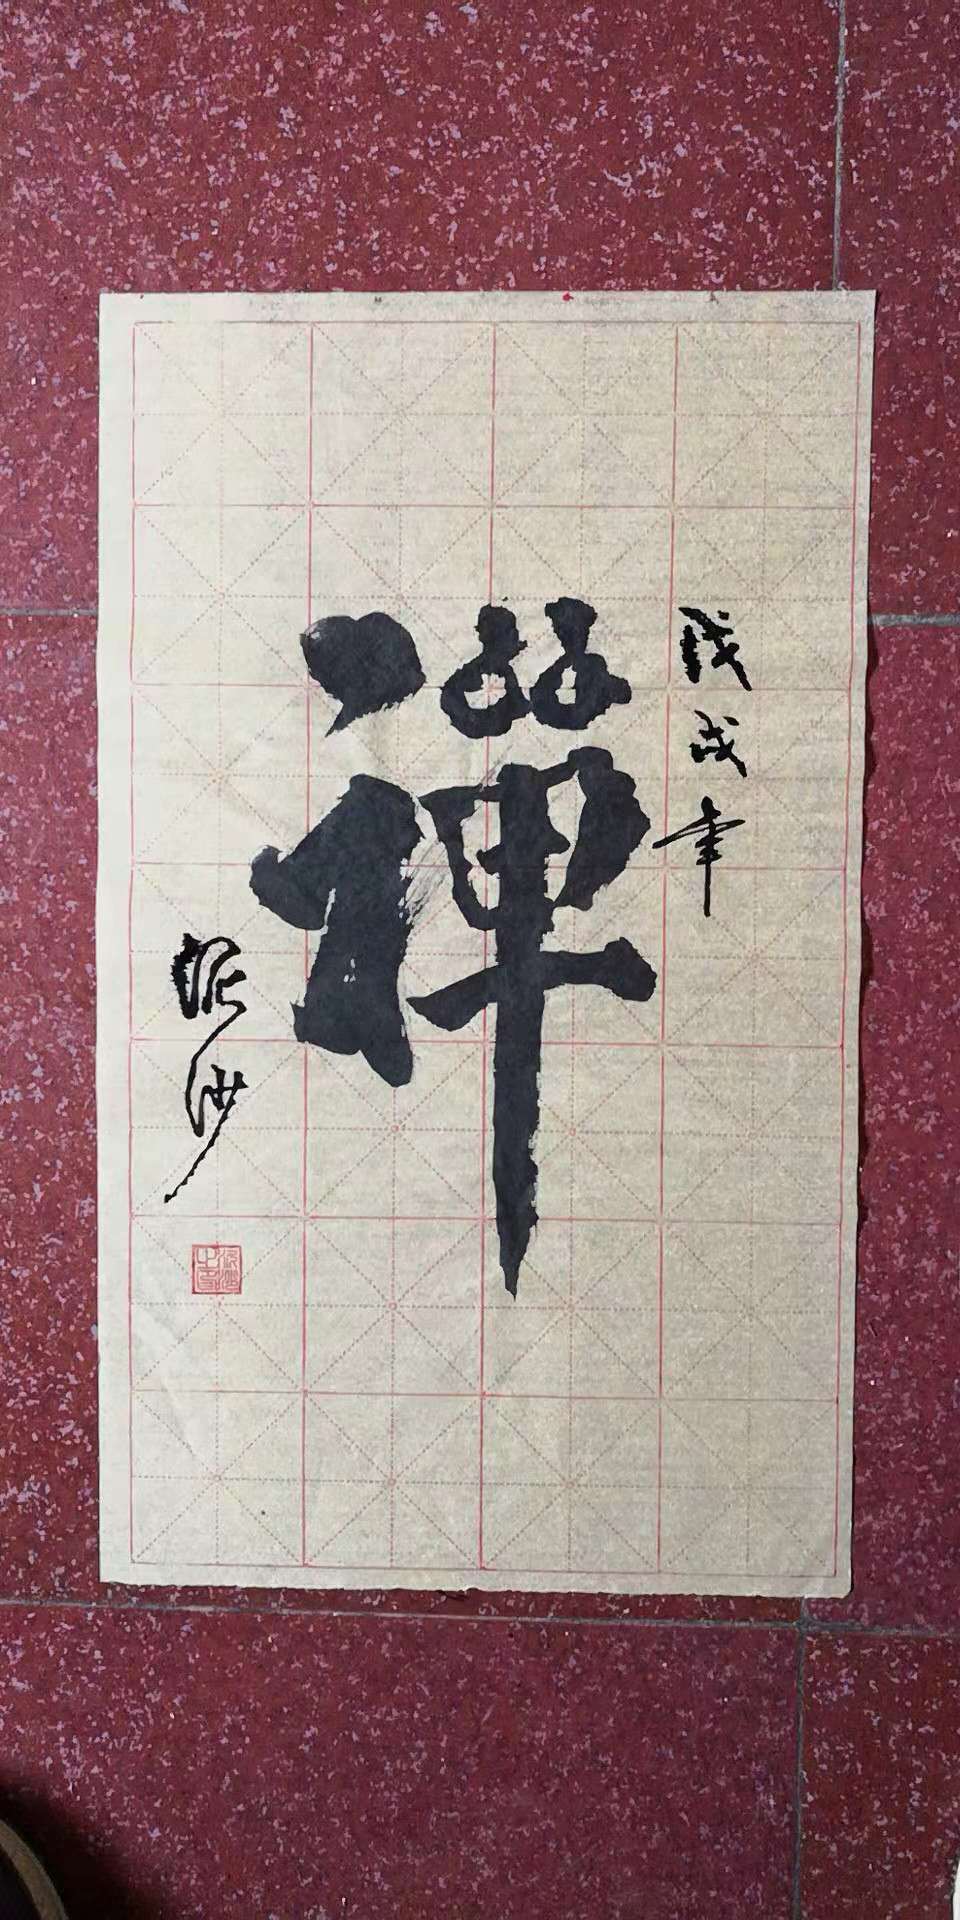 戊戌年
禪
泥沙